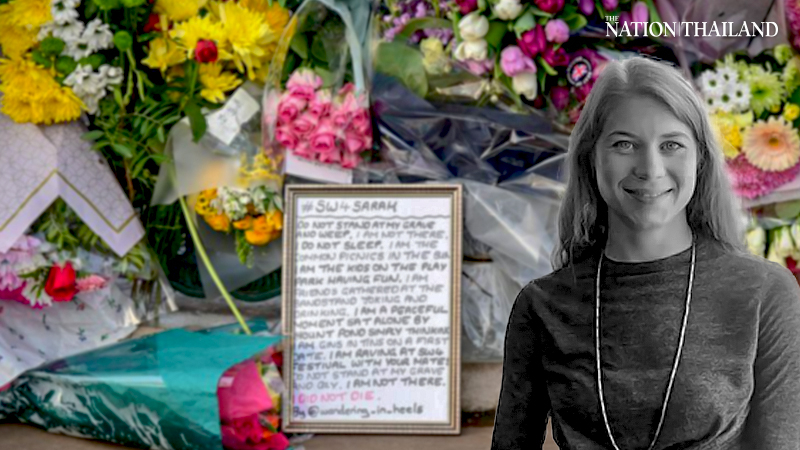 THE NATION THAILAND
#SW4SARAH
DO NOT STAND AT MY GRAVE
AND WEEP. I AM NOT THERE.
I DO NOT SLEEP. I AM THE
COMMON PICNICS IN THE SUN
I AM THE KIDS ON THE PLAY
PARK HAVING FUN. I AM
FRIENDS GATHERED AT THE
BANDSTAND JOKING AND
DRINKING. I AM A PEACEFUL
MOMENT SAT ALONE BY
MOUNT POND SIMPLY THINKING
I AM GINS IN TINS ON A FIRST
DATE. I AM RAVING AT SW4
FESTIVAL WITH YOUR MATES
DO NOT STAND AT MY GRAVE
AND CRY. I AM NOT THERE.
I DID NOT DIE.
By @wandering_in_heels